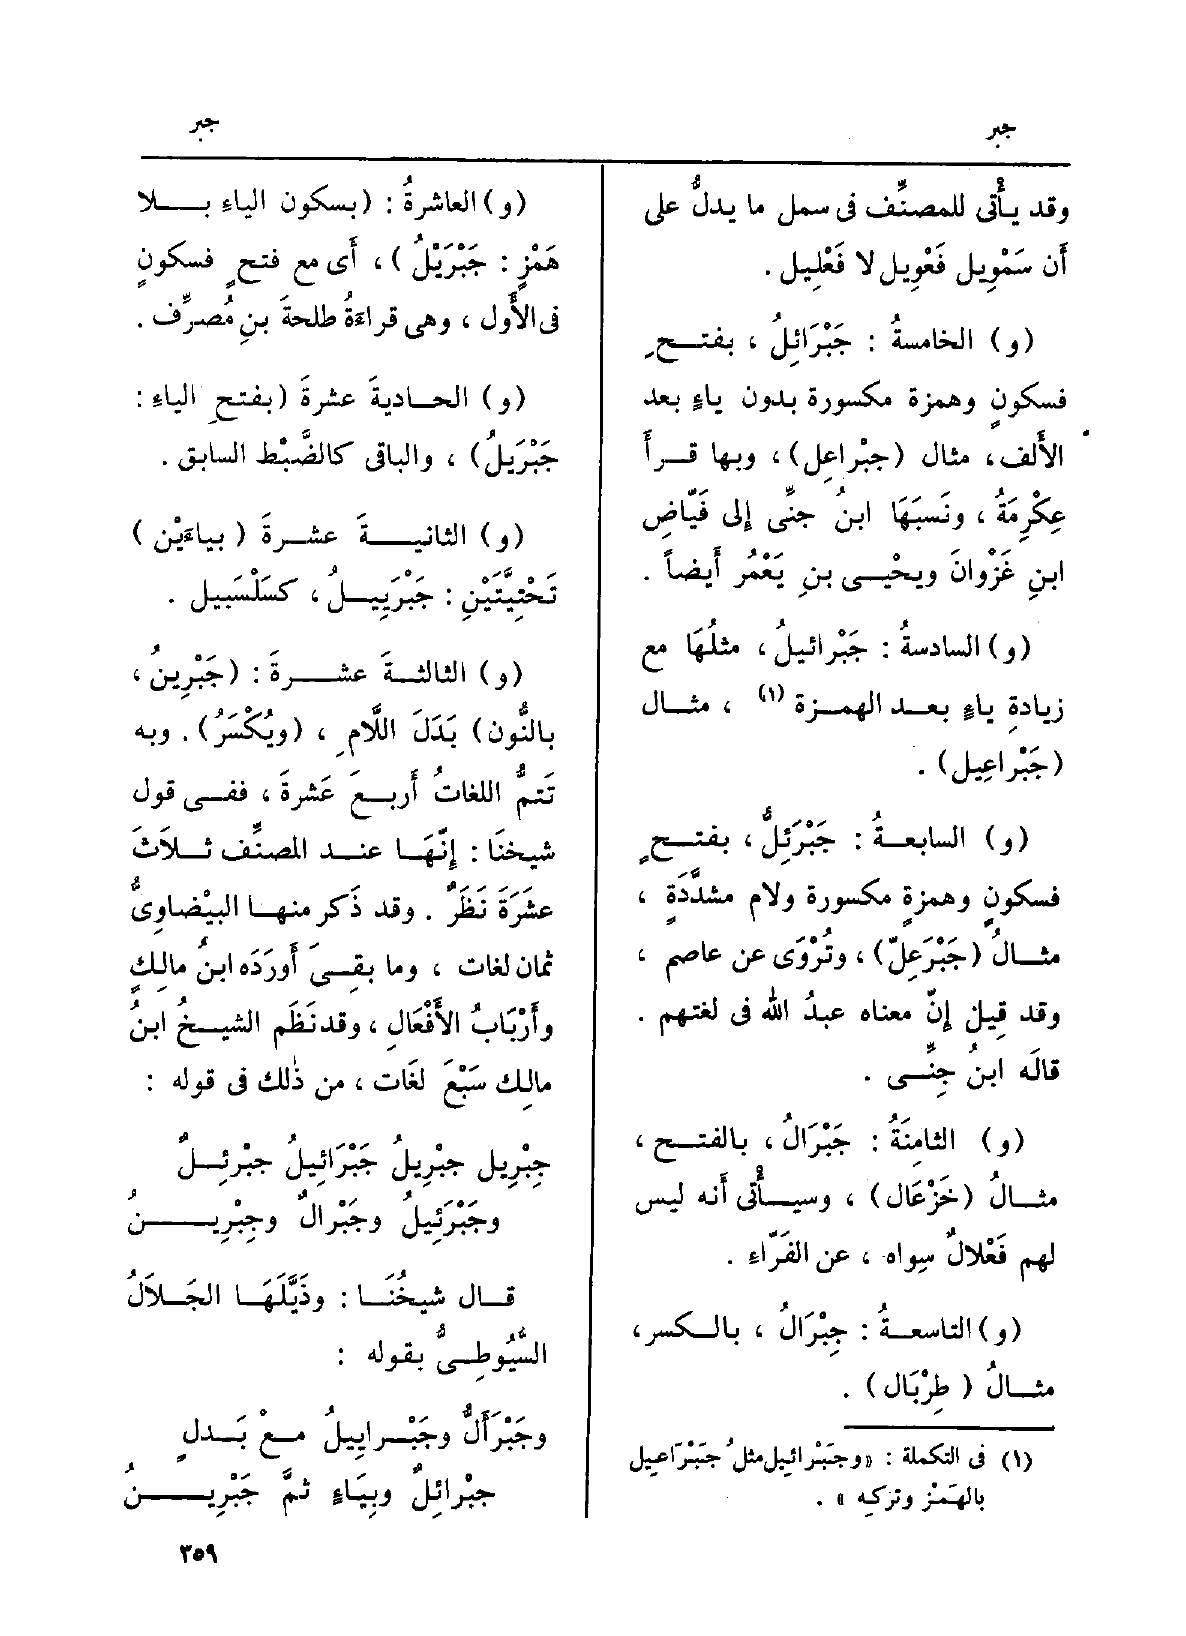 جبر
جبر
وقد يأْتى للمصنِّف فى سمل ما يدلُّ على
أن سَمْوِيل فَعْوِيل لا فَعْلِيل .
(و) الخامسةُ : جَبْرَائِلُ ، بفتـحٍ
فسكونٍ وهمزة مكسورة بدون ياءٍ بعد
الأَلف، مثال (جبْراعِل)، وبها قـرأَ
عِكْرِمَةُ ، ونَسبَهَا ابنُ جنِّى إلى فَيّاضِ
ابنِ غَزْوانَ ويحْيـى بنِ يَعْمُر أَيضاً .
(و) السادسةُ : جَبْرائيلُ ، مثلُهَا مع
زيادةِ ياءٍ بعـد الهمـزة (١) ، مثـال
(جَبْراعِيل) .
(و) السابعـةُ : جَبْرَئِلُّ ، بفتـحٍ
فسكونٍ وهمزةٍ مكسورة ولامٍ مشدَّدَةٍ ،
مثـالُ (جَبْرَعِلّ) ، وتُرْوَى عن عاصم ،
وقد قِيل إنّ معناه عبدُ الله فى لغتهم .
قالَه ابنُ جِنِّـى .
(و) الثامِنَةُ : جَبْرَالُ ، بالفتـح ،
مثـالُ (خَزْعَال) ، وسيـأْتى أَنه ليس
لهم فَعْلالٌ سِواه ، عن الفَرّاء .
(و) التاسعـةُ : جِبْرَالُ ، بالـكسر،
مثـالُ ( طِرْبَال) .
(١) فى التكملة : «وجَبْرائيل مثلُ جَبْرَاعيل
بالهَمْز وتركه » .
(و) العاشرةُ : (بسكون الياءِ بـلا
هَمْزٍ : جَبْرَيْلُ ) ، أَى مع فتحٍ فسكونٍ
فى الأَول ، وهى قراءَةُ طلحةَ بنِ مُصرِّف .
(و) الحـاديةَ عشرةَ (بفتحِ الياءِ :
جَبْرَيَلُ) ، والباقى كالضَّبْط السابق .
(و) الثانيـةَ عشـرةَ ( بياءَيْن )
تَحْتِيَّتَيْنِ : جَبْرَيِيـلُ ، كسَلْسَبِيل .
(و) الثالثـةَ عشـرةَ : (جَبْرِينُ ،
بالنُّون) بَدَلَ اللَّامِ ، (ويُكْسَرُ) . وبه
تَتمُّ اللغاتُ أَربـعَ عَشرةَ ، ففـى قول
شيخنَا : إنَّهَـا عنـد المصنِّف ثـلاثَ
عشرَةَ نَظَرٌ . وقد ذَكر منهـا البيْضاوىُّ
ثمان لغات ، وما بقـىَ أَورَدَه ابنُ مالِكٍ
وأَرْبَابُ الأَفْعَالِ ، وقد نَظَم الشيـخُ ابنُ
مالِك سَبْعَ لغَات ، من ذٰلك فى قوله :
جِبْرِيل جبْرِيلُ جَبْرَائِيلُ جبْرئِـلٌ
وجَبْرَئِيلُ وجَبْرالٌ وجِبْرِيـنُ
قـال شيخُنَـا : وذَيَّلَهَـا الجَـلاَلُ
السُّيُوطِـىُّ بقوله :
وجَبْرَأَلُّ وجَبْـراييلُ مـعْ بَـدلٍ
جبْرائلٌ وبِيَاءٍ ثمَّ جَبْرِيـنُ
٣٥٩